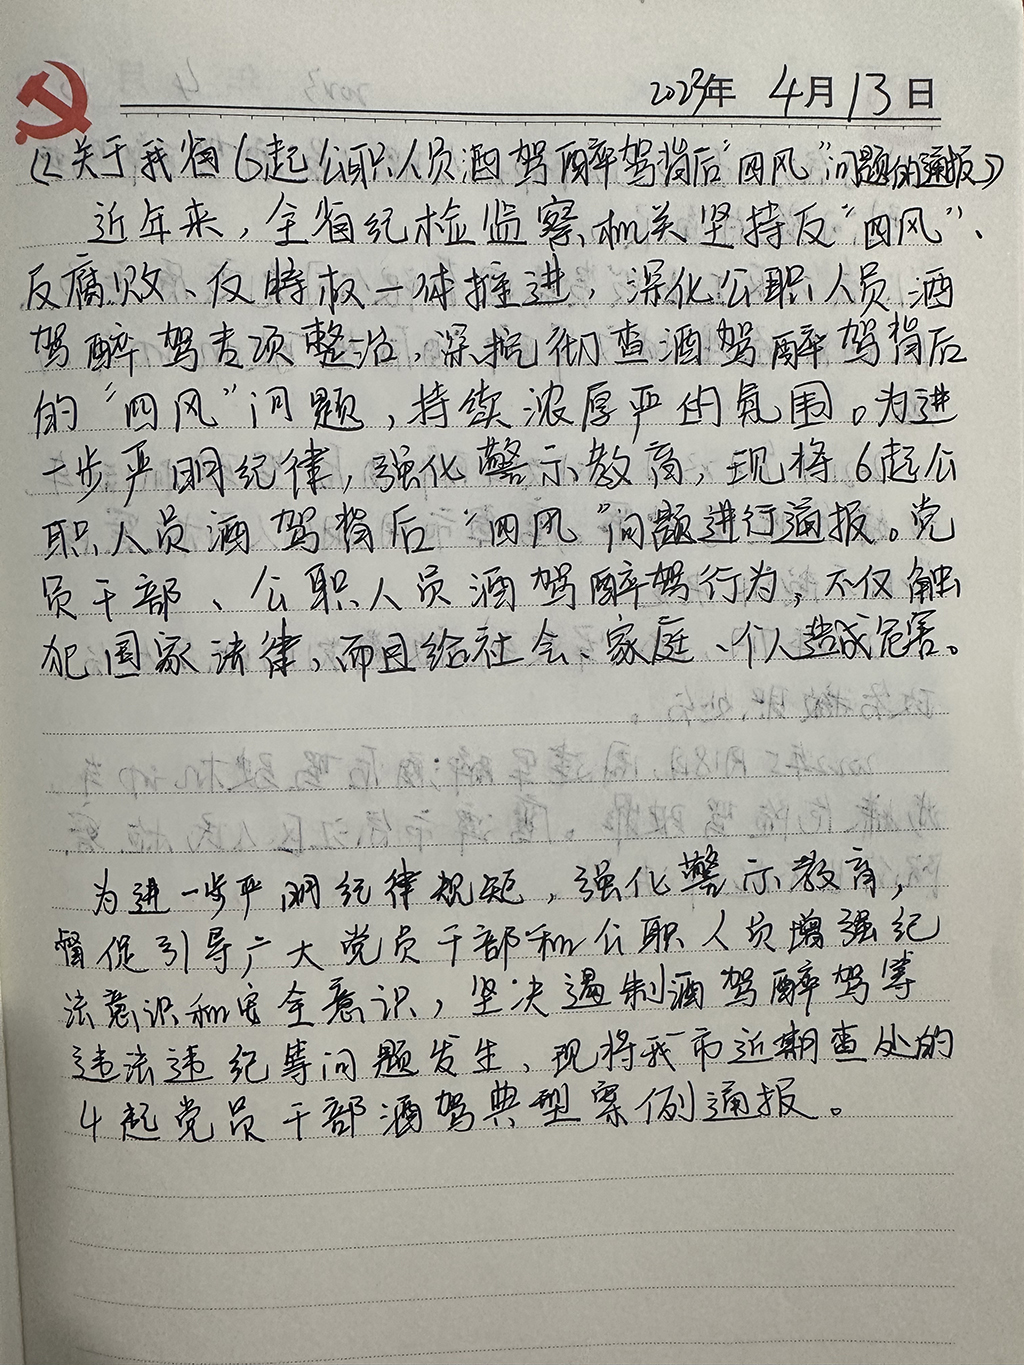 2023年 4月13日
《关于我省6起公职人员酒驾醉驾背后“四风”问题的通报》
近年来，全省纪检监察机关坚持反“四风”、
反腐败、反特权一体推进，深化公职人员酒
驾醉驾专项整治，深挖彻查酒驾醉驾背后
的“四风”问题，持续浓厚严的氛围。为进
一步严明纪律，强化警示教育，现将6起公
职人员酒驾背后“四风”问题进行通报。党
员干部、公职人员酒驾醉驾行为，不仅触
犯国家法律，而且给社会、家庭、个人造成危害。
为进一步严明纪律规矩，强化警示教育，
督促引导广大党员干部和公职人员增强纪
法意识和安全意识，坚决遏制酒驾醉驾等
违法违纪等问题发生，现将我市近期查处的
4起党员干部酒驾典型案例通报。